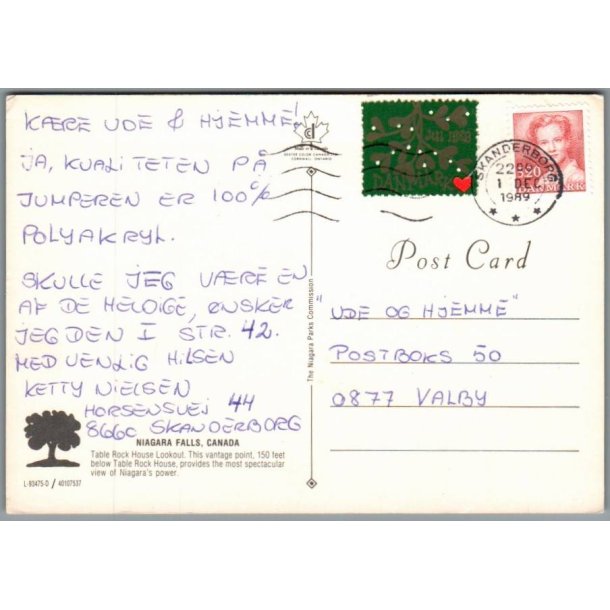 KÆRE UDE & HJEMME!
JA, KVALITETEN PÅ
JUMPEREN ER 100%
POLYAKRYL.
SKULLE JEG VÆRE EN
AF DE HELDIGE, ØNSKER
JEG DEN I STR. 42.
MED VENLIG HILSEN
KETTY NIELSEN
HORSENSVEJ 44
8660 SKANDERBORG
NIAGARA FALLS, CANADA
Table Rock House Lookout. This vantage point, 150 feet
below Table Rock House, provides the most spectacular
view of Niagara's power.
L-93475-D / 40107537
The Niagara Parks Commission
DANMARK
SKANDERBORG
1 DEC.
1989
320
DANMARK
Post Card
"UDE OG HJEMME"
POSTBOKS 50
0877 VALBY